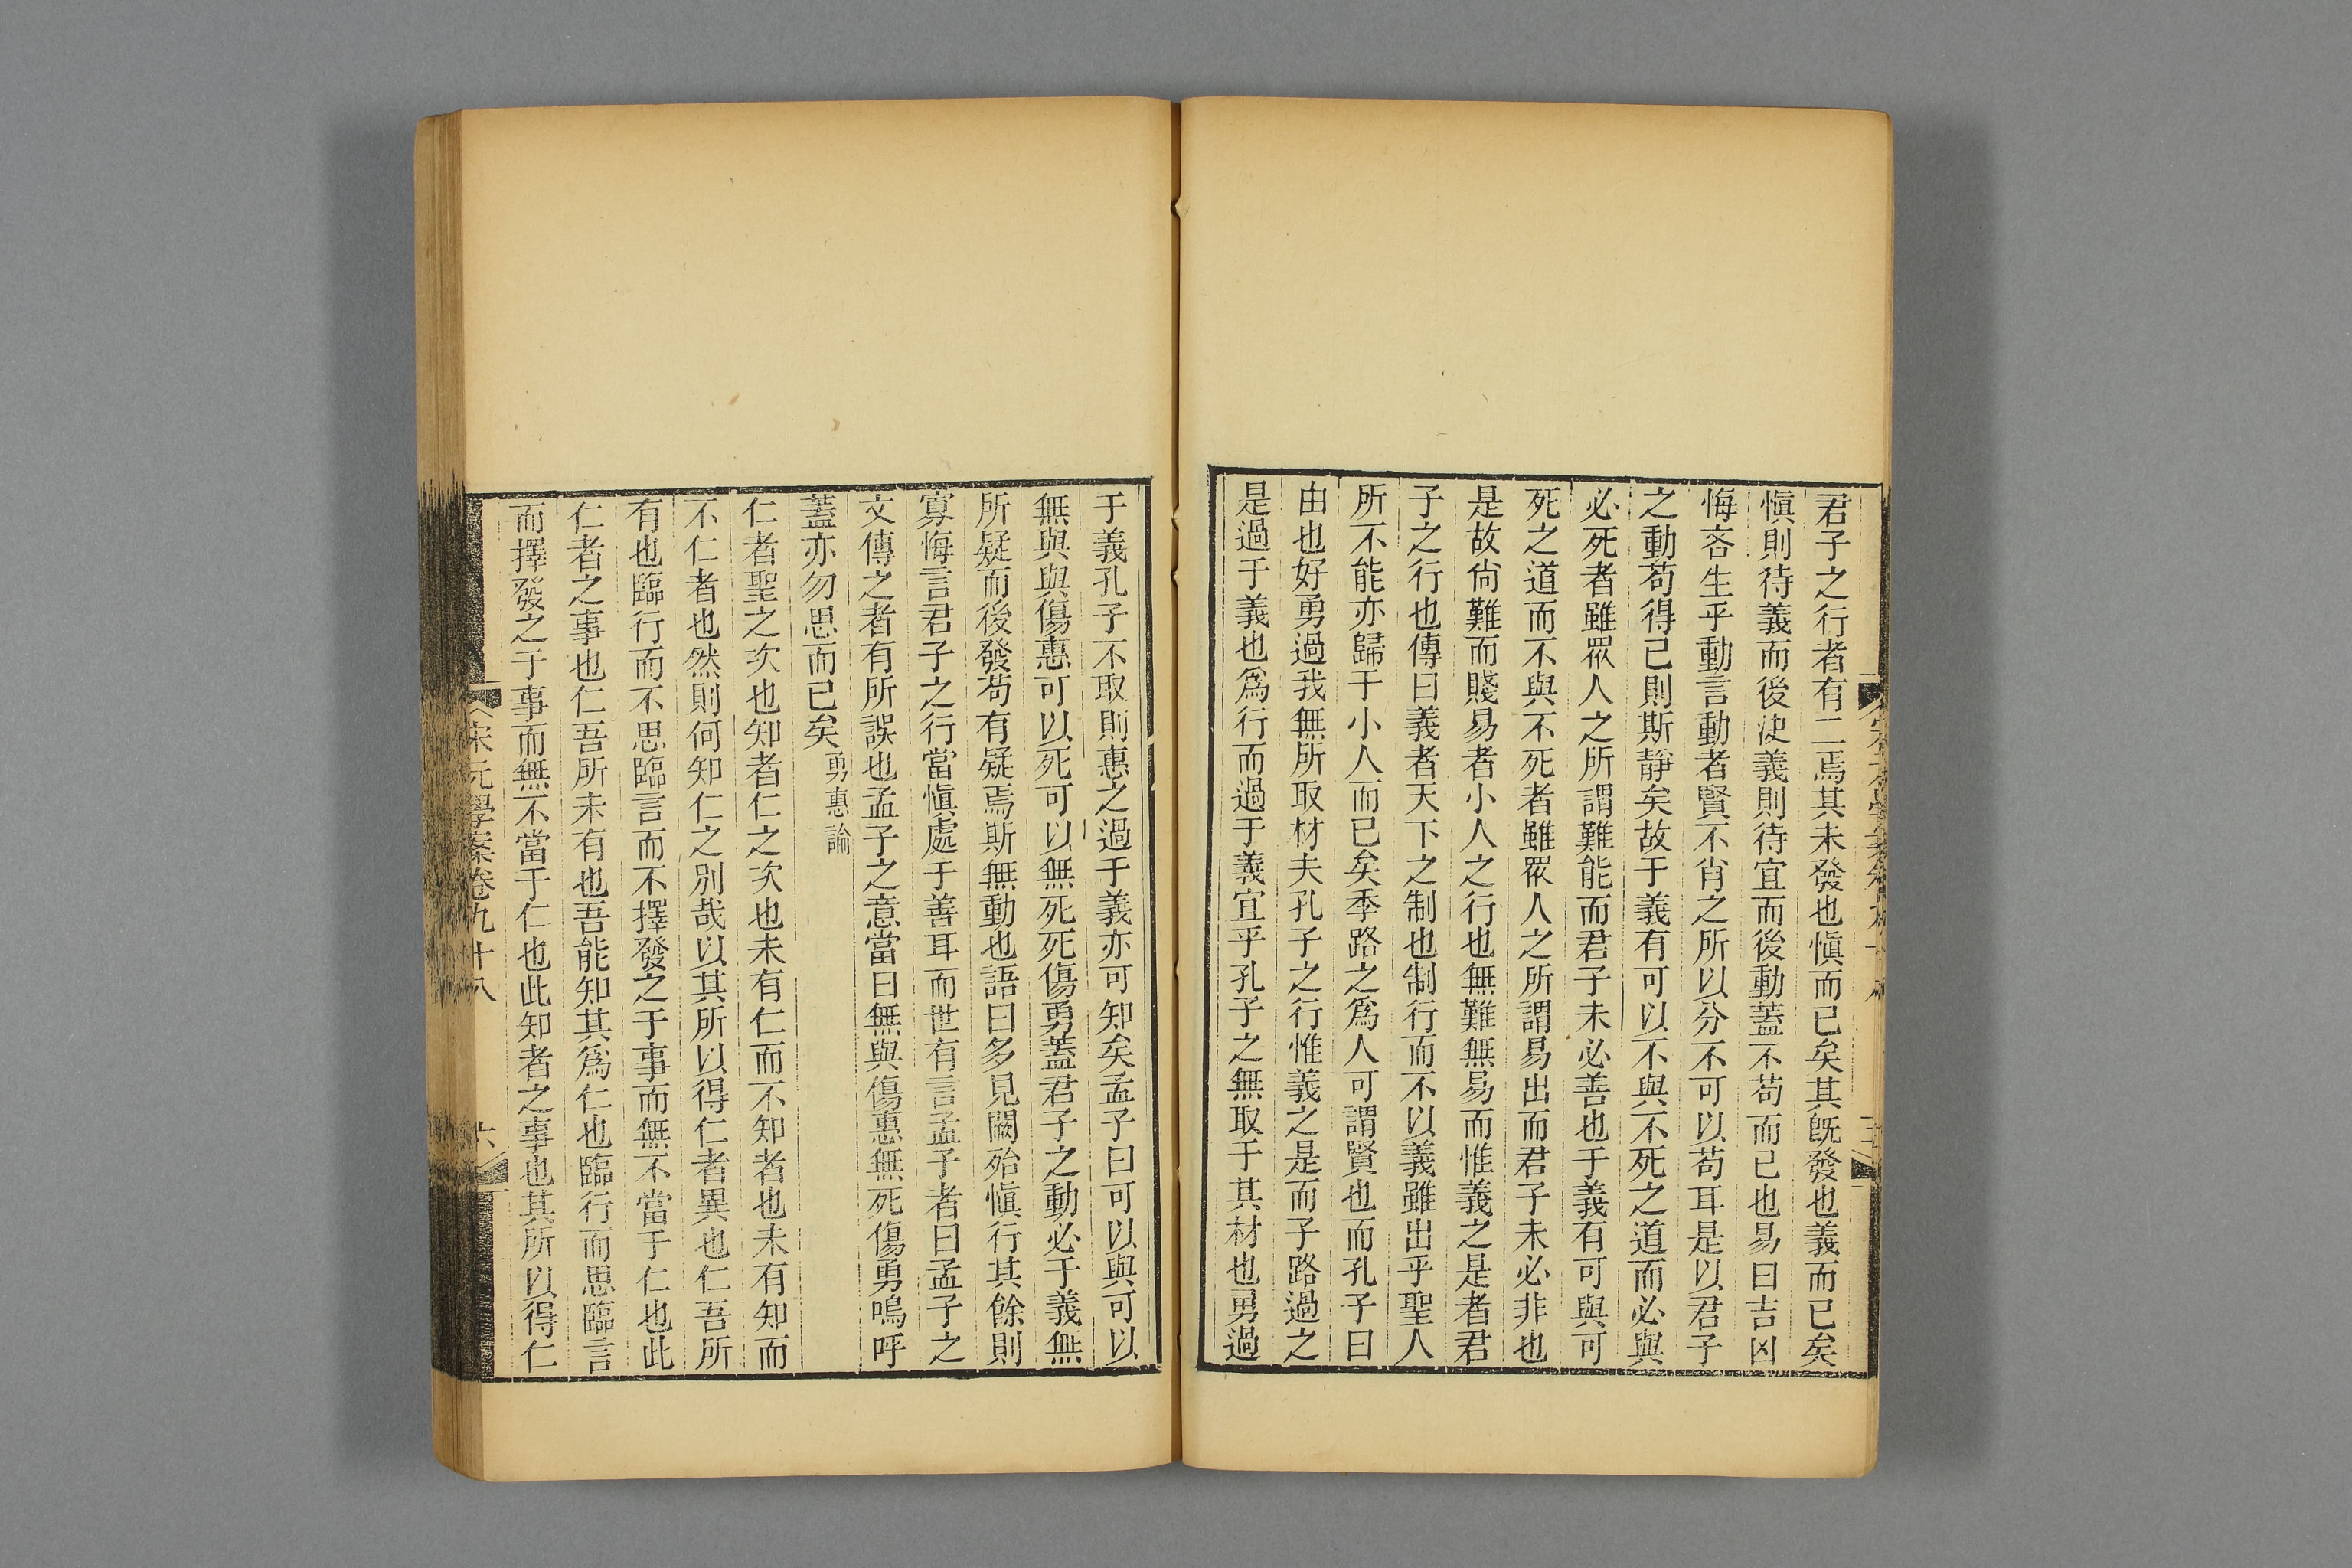 君子之行者有二焉其未發也愼而已矣其旣發也義而已矣
愼則待義而後決義則待宜而後動蓋不苟而已也易曰吉凶
悔吝生乎動言動者賢不肖之所以分不可以苟耳是以君子
之動苟得已則斯靜矣故于義有可以不與不死之道而必與
必死者雖眾人之所謂難能而君子未必善也于義有可與可
死之道而不與不死者雖眾人之所謂易出而君子未必非也
是故尙難而賤易者小人之行也無難無易而惟義之是者君
子之行也傳曰義者天下之制也制行而不以義雖出乎聖人
所不能亦歸于小人而已矣季路之爲人可謂賢也而孔子曰
由也好勇過我無所取材夫孔子之行惟義之是而子路過之
是過于義也爲行而過于義宜乎孔子之無取于其材也勇過
于義孔子不取則惠之過于義亦可知矣孟子曰可以與可以
無與與傷惠可以死可以無死死傷勇蓋君子之動必于義無
所疑而後發苟有疑焉斯無動也語曰多見闕殆愼行其餘則
寡悔言君子之行當愼處于善耳而世有言孟子者曰孟子之
文傳之者有所誤也孟子之意當曰無與傷惠無死傷勇嗚呼
蓋亦勿思而已矣勇惠論
仁者聖之次也知者仁之次也未有仁而不知者也未有知而
不仁者也然則何知仁之別哉以其所以得仁者異也仁吾所
有也臨行而不思臨言而不擇發之于事而無不當于仁也此
仁者之事也仁吾所未有也吾能知其爲仁也臨行而思臨言
而擇發之于事而無不當于仁也此知者之事也其所以得仁
宋元學案卷九十八
六